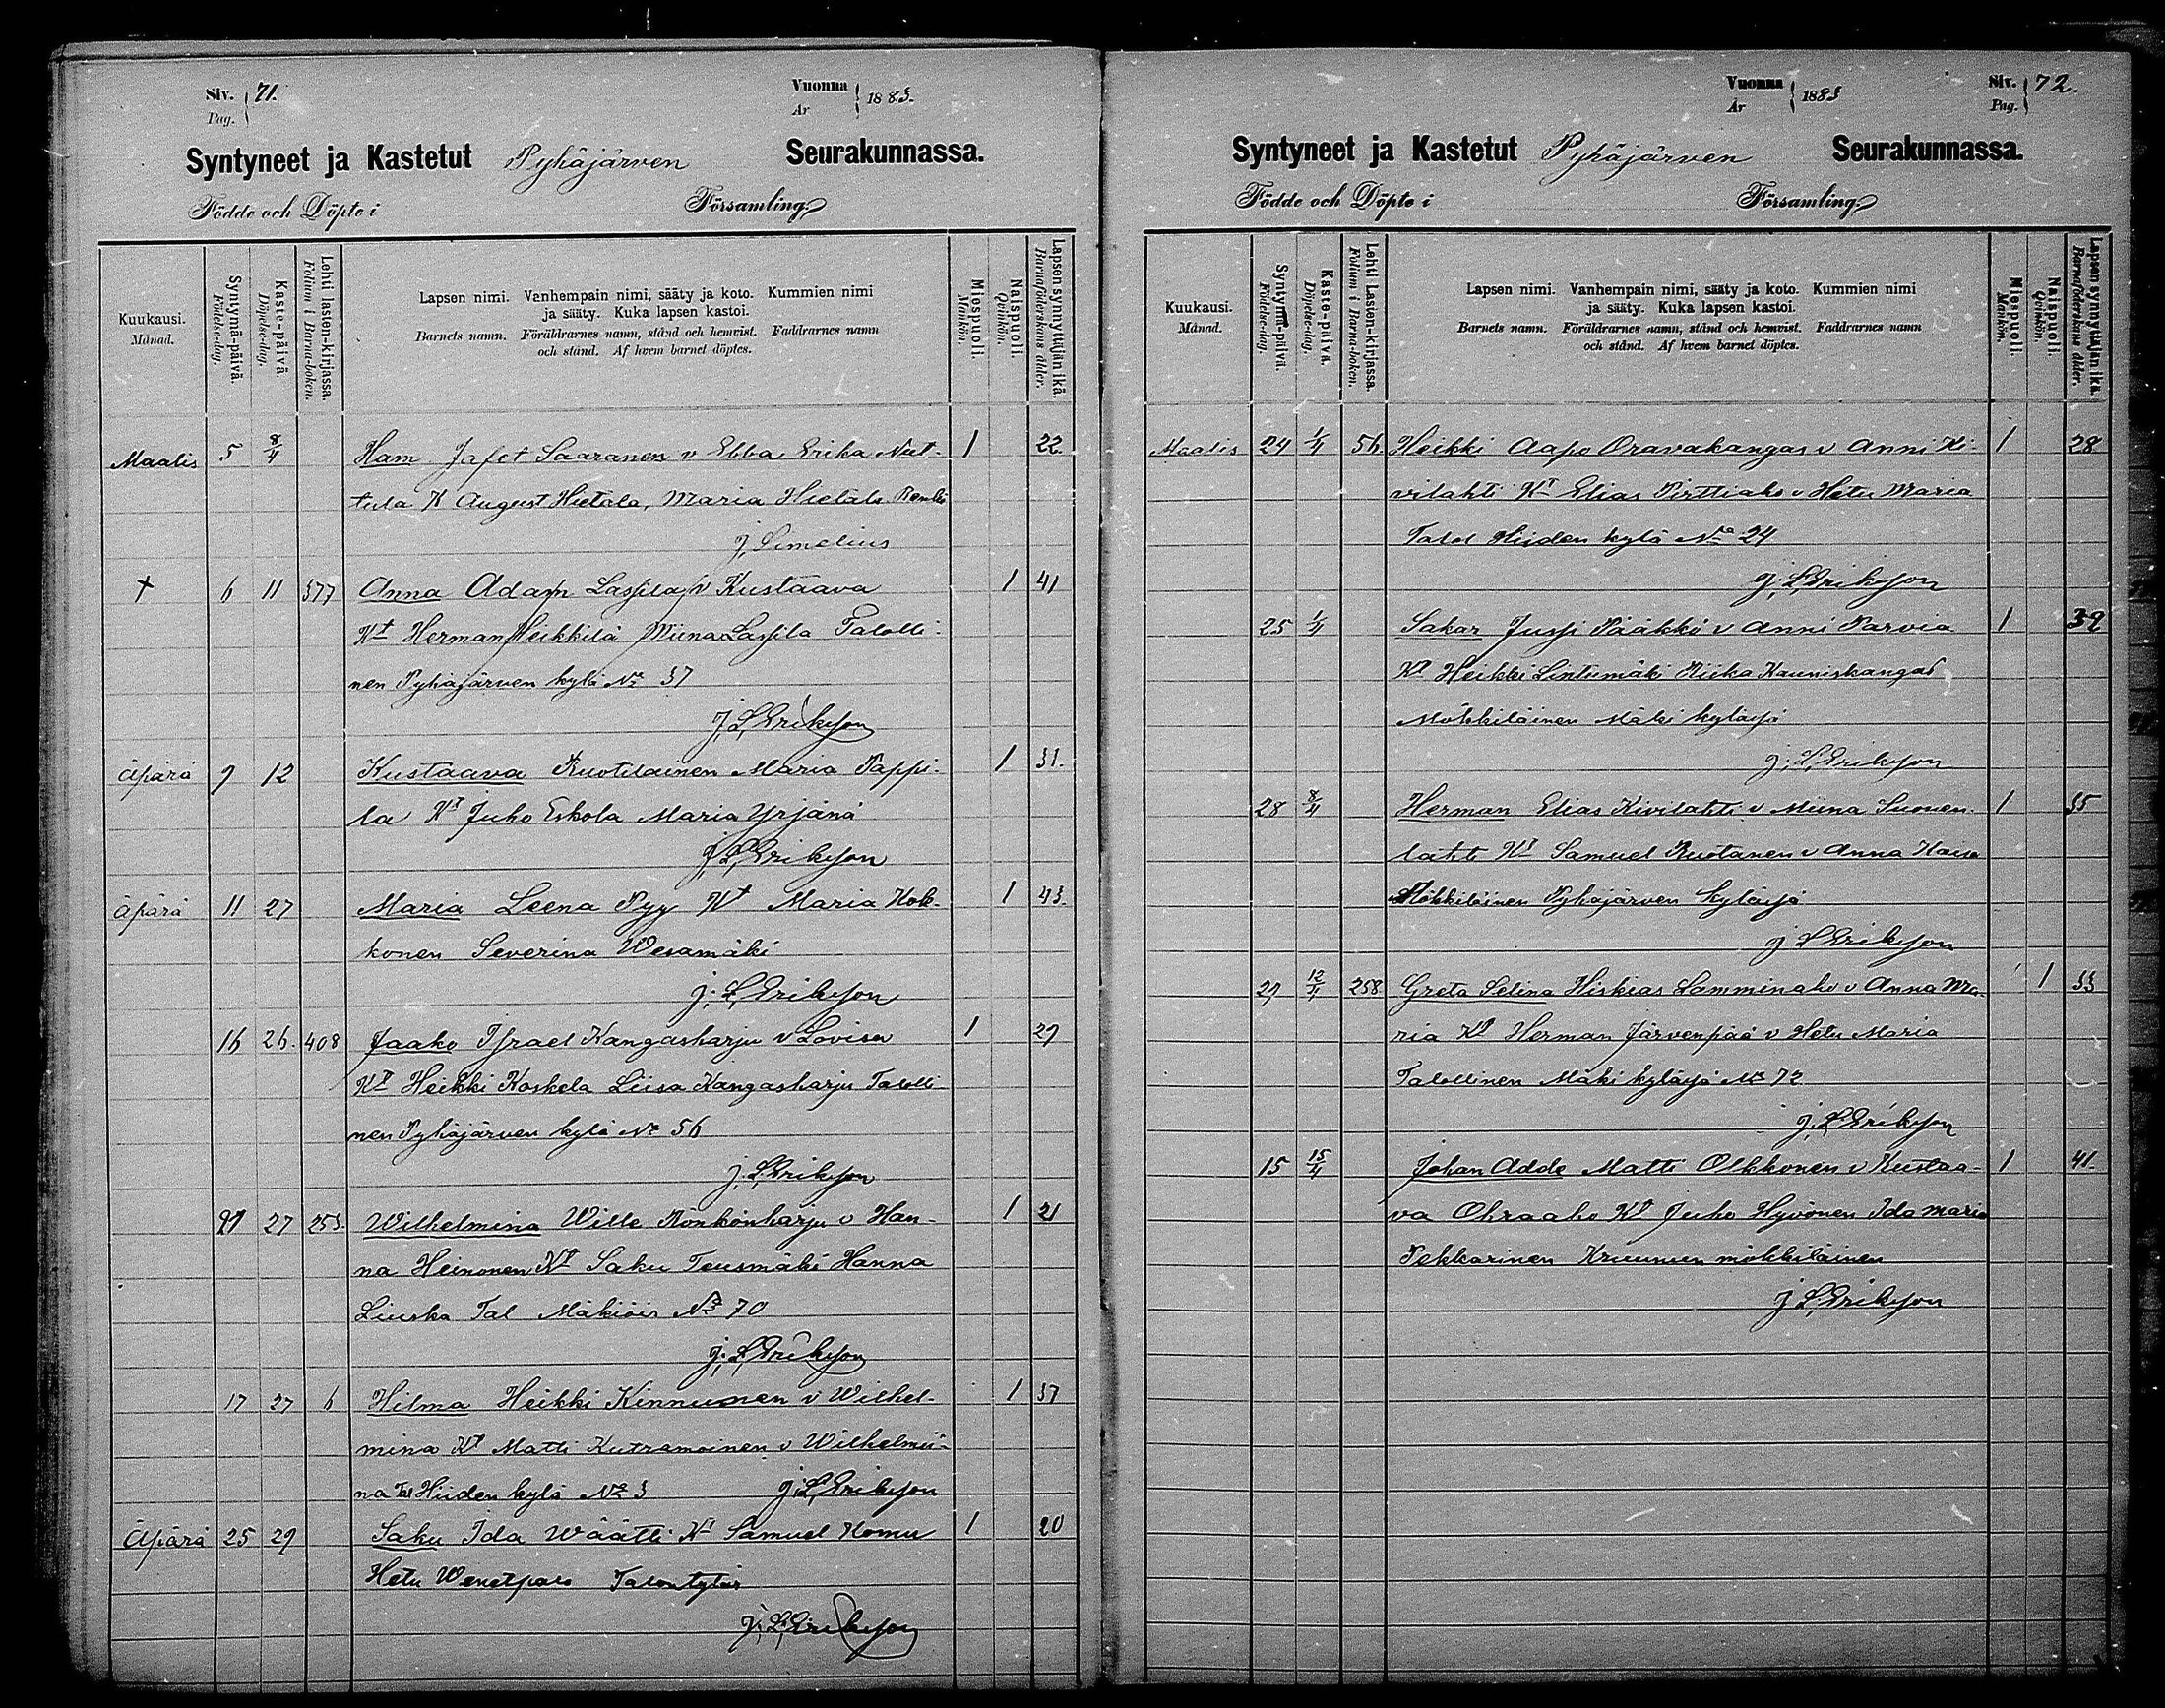 Siv. Pag. 71.
Vuonna År 1883.
Syntyneet ja Kastetut Pyhäjärven Seurakunnassa.
Födde och Döpte i Församling.
Kuukausi. Månad.
Syntymä-päivä. Födelse-dag.
Kaste-päivä. Döpelse-dag.
Lehti lasten-kirjassa. Folium i Barna-boken.
Lapsen nimi. Vanhempain nimi, sääty ja koto. Kummien nimi
ja sääty. Kuka lapsen kastoi.
Barnets namn. Föräldrarnes namn, stånd och hemvist. Faddrarnes namn
och stånd. Af hvem barnet döptes.
Miespuoli. Mankön.
Naispuoli. Qvinkön.
Lapsen synnyttäjän ikä. Barnaföderskans ålder.
Maalis 5 8/4 Ham Jafet Saaranen v Ebba Erika Nut- 1 22
tula K August Hietala, Maria Hietala
J. Simelius
† 6 11 377 Anna Adam Lassila v Kustaava 1 41
Kt Herman Heikkilä Miina Lassila Talolli-
nen Pyhäjärven kylä No 37
J. L. Erikson
Äpärä 9 12 Kustaava Ruotilainen Maria Pappi- 1 31.
la Kt Juho Eskola Maria Yrjänä
J. L. Erikson
Äpärä 11 27 Maria Leena Pyy Kt Maria Kok- 1 43.
konen Severina Wesamäki
J. L. Erikson
16 26. 408 Jaako Israel Kangasharju v Lovisa 1 29
Kt Heikki Koskela Liisa Kangasharju Talolli
nen Pyhäjärven kylä No 56
J. L. Erikson
27 253. Wilhelmina Wille Rönkönharju v Han- 1 21
na Heinonen Kt Saku Teusmäki Hanna
Liuska Tal Mäkiöis No 70
J. L. Erikson
17 27 6 Hilma Heikki Kinnunen v Wilhel- 1 37
mina Kt Matti Kutramoinen v Wilhelmii-
na Tal Hiiden kylä No 3 J. L. Erikson
Äpärä 25 29 Saku Ida Wäätti Kt Samuel Komu 1 20
Hetu Wenetpalo Talontytär
J. L. Erikson
Vuonna År 1883
Siv. Pag. 72.
Syntyneet ja Kastetut Pyhäjärven Seurakunnassa.
Födde och Döpte i Församling.
Kuukausi. Månad.
Syntymä-päivä. Födelse-dag.
Kaste-päivä. Döpelse-dag.
Lehti Lasten-kirjassa. Folium i Barna-boken.
Lapsen nimi. Vanhempain nimi, sääty ja koto. Kummien nimi
ja sääty. Kuka lapsen kastoi.
Barnets namn. Föräldrarnes namn, stånd och hemvist. Faddrarnes namn
och stånd. Af hvem barnet döptes.
Miespuoli. Mankön.
Naispuoli. Qvinkön.
Lapsen synnyttäjän ikä. Barnaföderskans ålder.
Maalis 24 1/4 56 Heikki Aapo Oravakangas v Anni Ki- 1 28
vilahti Kt Elias Pirttiaho v Hetu Maria
Talol Hiiden kylä No 24
J. L. Erikson
25 1/4 Sakar Jussi Pääkkö v Anni Parvia 1 39
Kt Heikki Lintumäki Riika Kauniskangas
Mökkiläinen Mäki kyläsä
J. L. Erikson
28 8/4 Herman Elias Kivilahti v Miina Suonen- 1 35
lahti Kt Samuel Ruotanen v Anna Kaisa
Mökkiläinen Pyhäjärven kyläsä
J. L. Erikson
29 12/4 258 Greta Selina Hiskias Lamminaho v Anna Ma- 1 33
ria Kt Herman Järvenpää v Hetu Maria
Talollinen Mäki kyläsä No 72
J. L. Erikson
15 15/4 Johan Adde Matti Olkkonen v Kustaa- 1 41.
va Ohraaho Kt Juho Hyvönen Ida Maria
Pekkarinen Kruunun mökkiläinen
J. L. Erikson